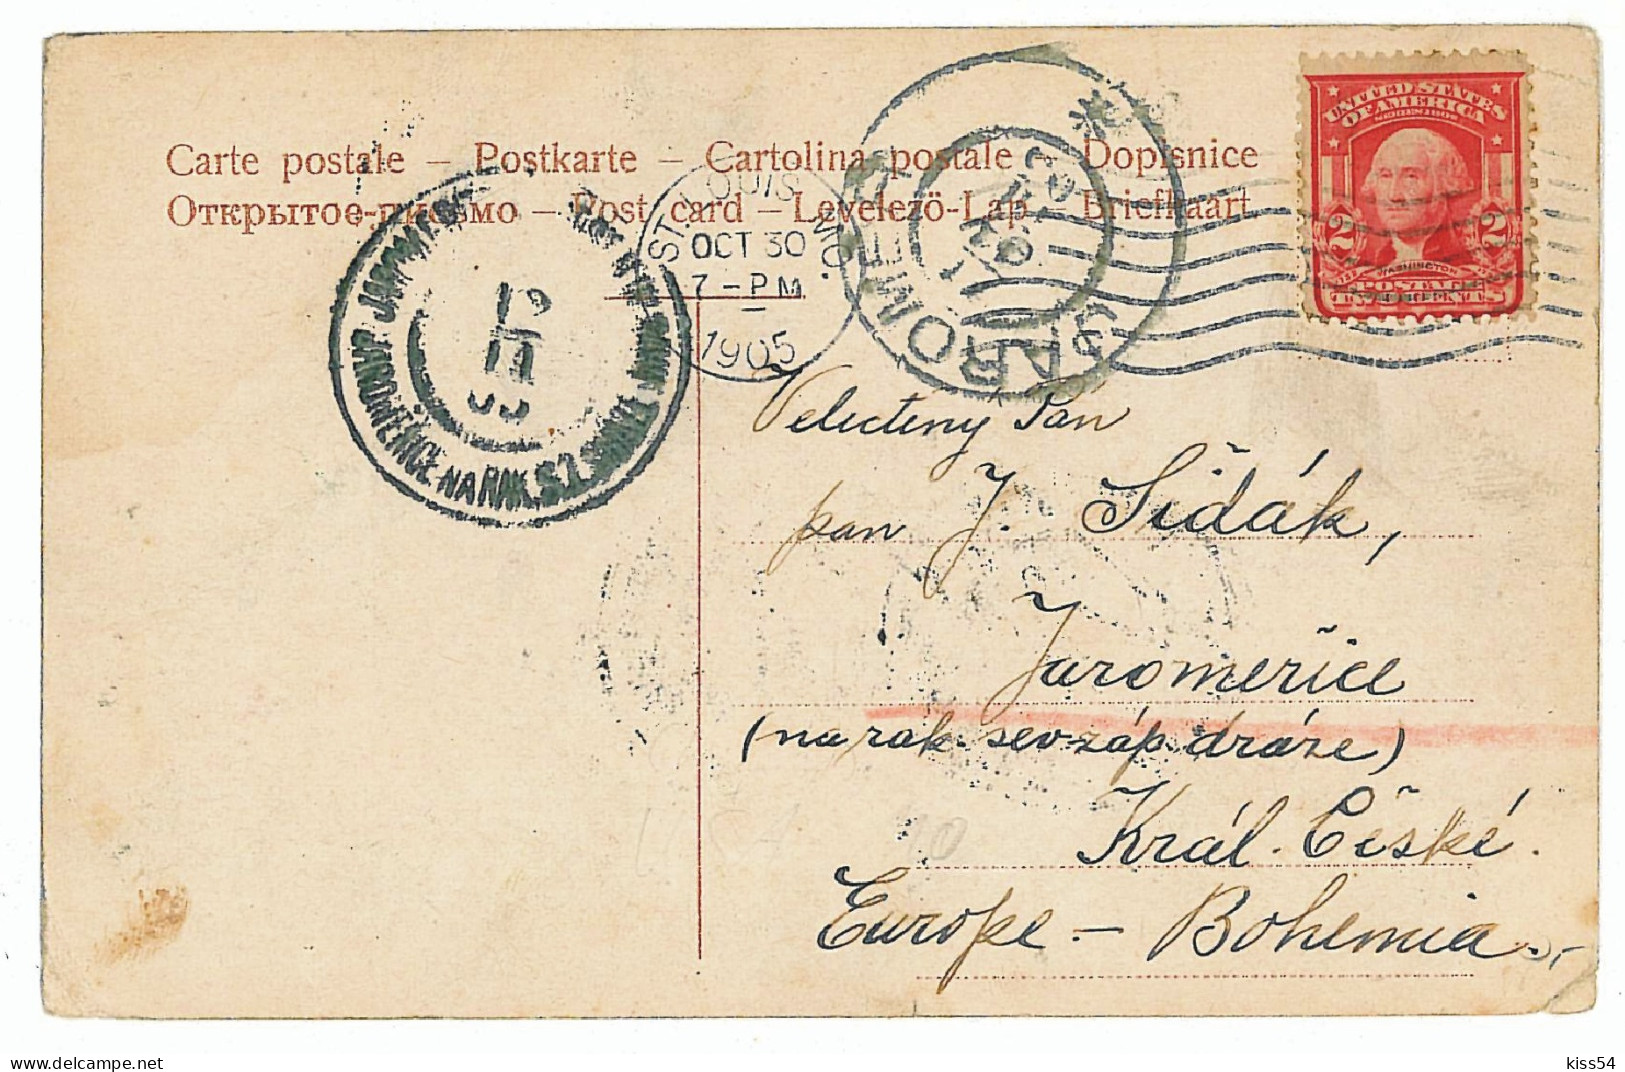 Carte postale – Postkarte – Cartolina postale – Dopisnice
Открытое-письмо – Post card – Levelezö-Lap – Briefkaart
ST. LOUIS MO.
OCT 30
7 – PM
1905
UNITED STATES
OF AMERICA
SERIES 1902
2 2
WASHINGTON
POSTAGE
TWO CENTS
JAROMĚŘICE NA RAK. S. Z.
Velectěny Pan
pan J Šidák,
Jaroměřice
(na rak. sev-záp. dráze)
Král. České.
Europe. – Bohemia. –
kiss54